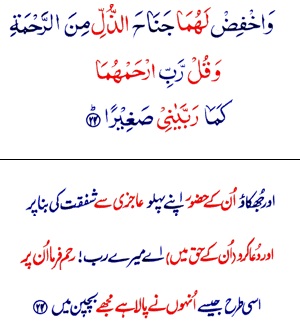 وَاخْفِضْ لَهُمَا جَنَاحَ الذُّلِّ مِنَ الرَّحْمَةِ
وَقُلْ رَّبِّ ارْحَمْهُمَا
كَمَا رَبَّيٰنِيْ صَغِيْرًا ﴿۲۴﴾
اور جھکاؤ اُن کے حضور اپنے پہلو عاجزی سے شفقت کی بنا پر
اور دعا کرو (اُن کے حق میں) اے میرے رب! رحم فرما اُن پر
اسی طرح جیسے اُنہوں نے پالا ہے مجھے بچپن میں ﴿۲۴﴾